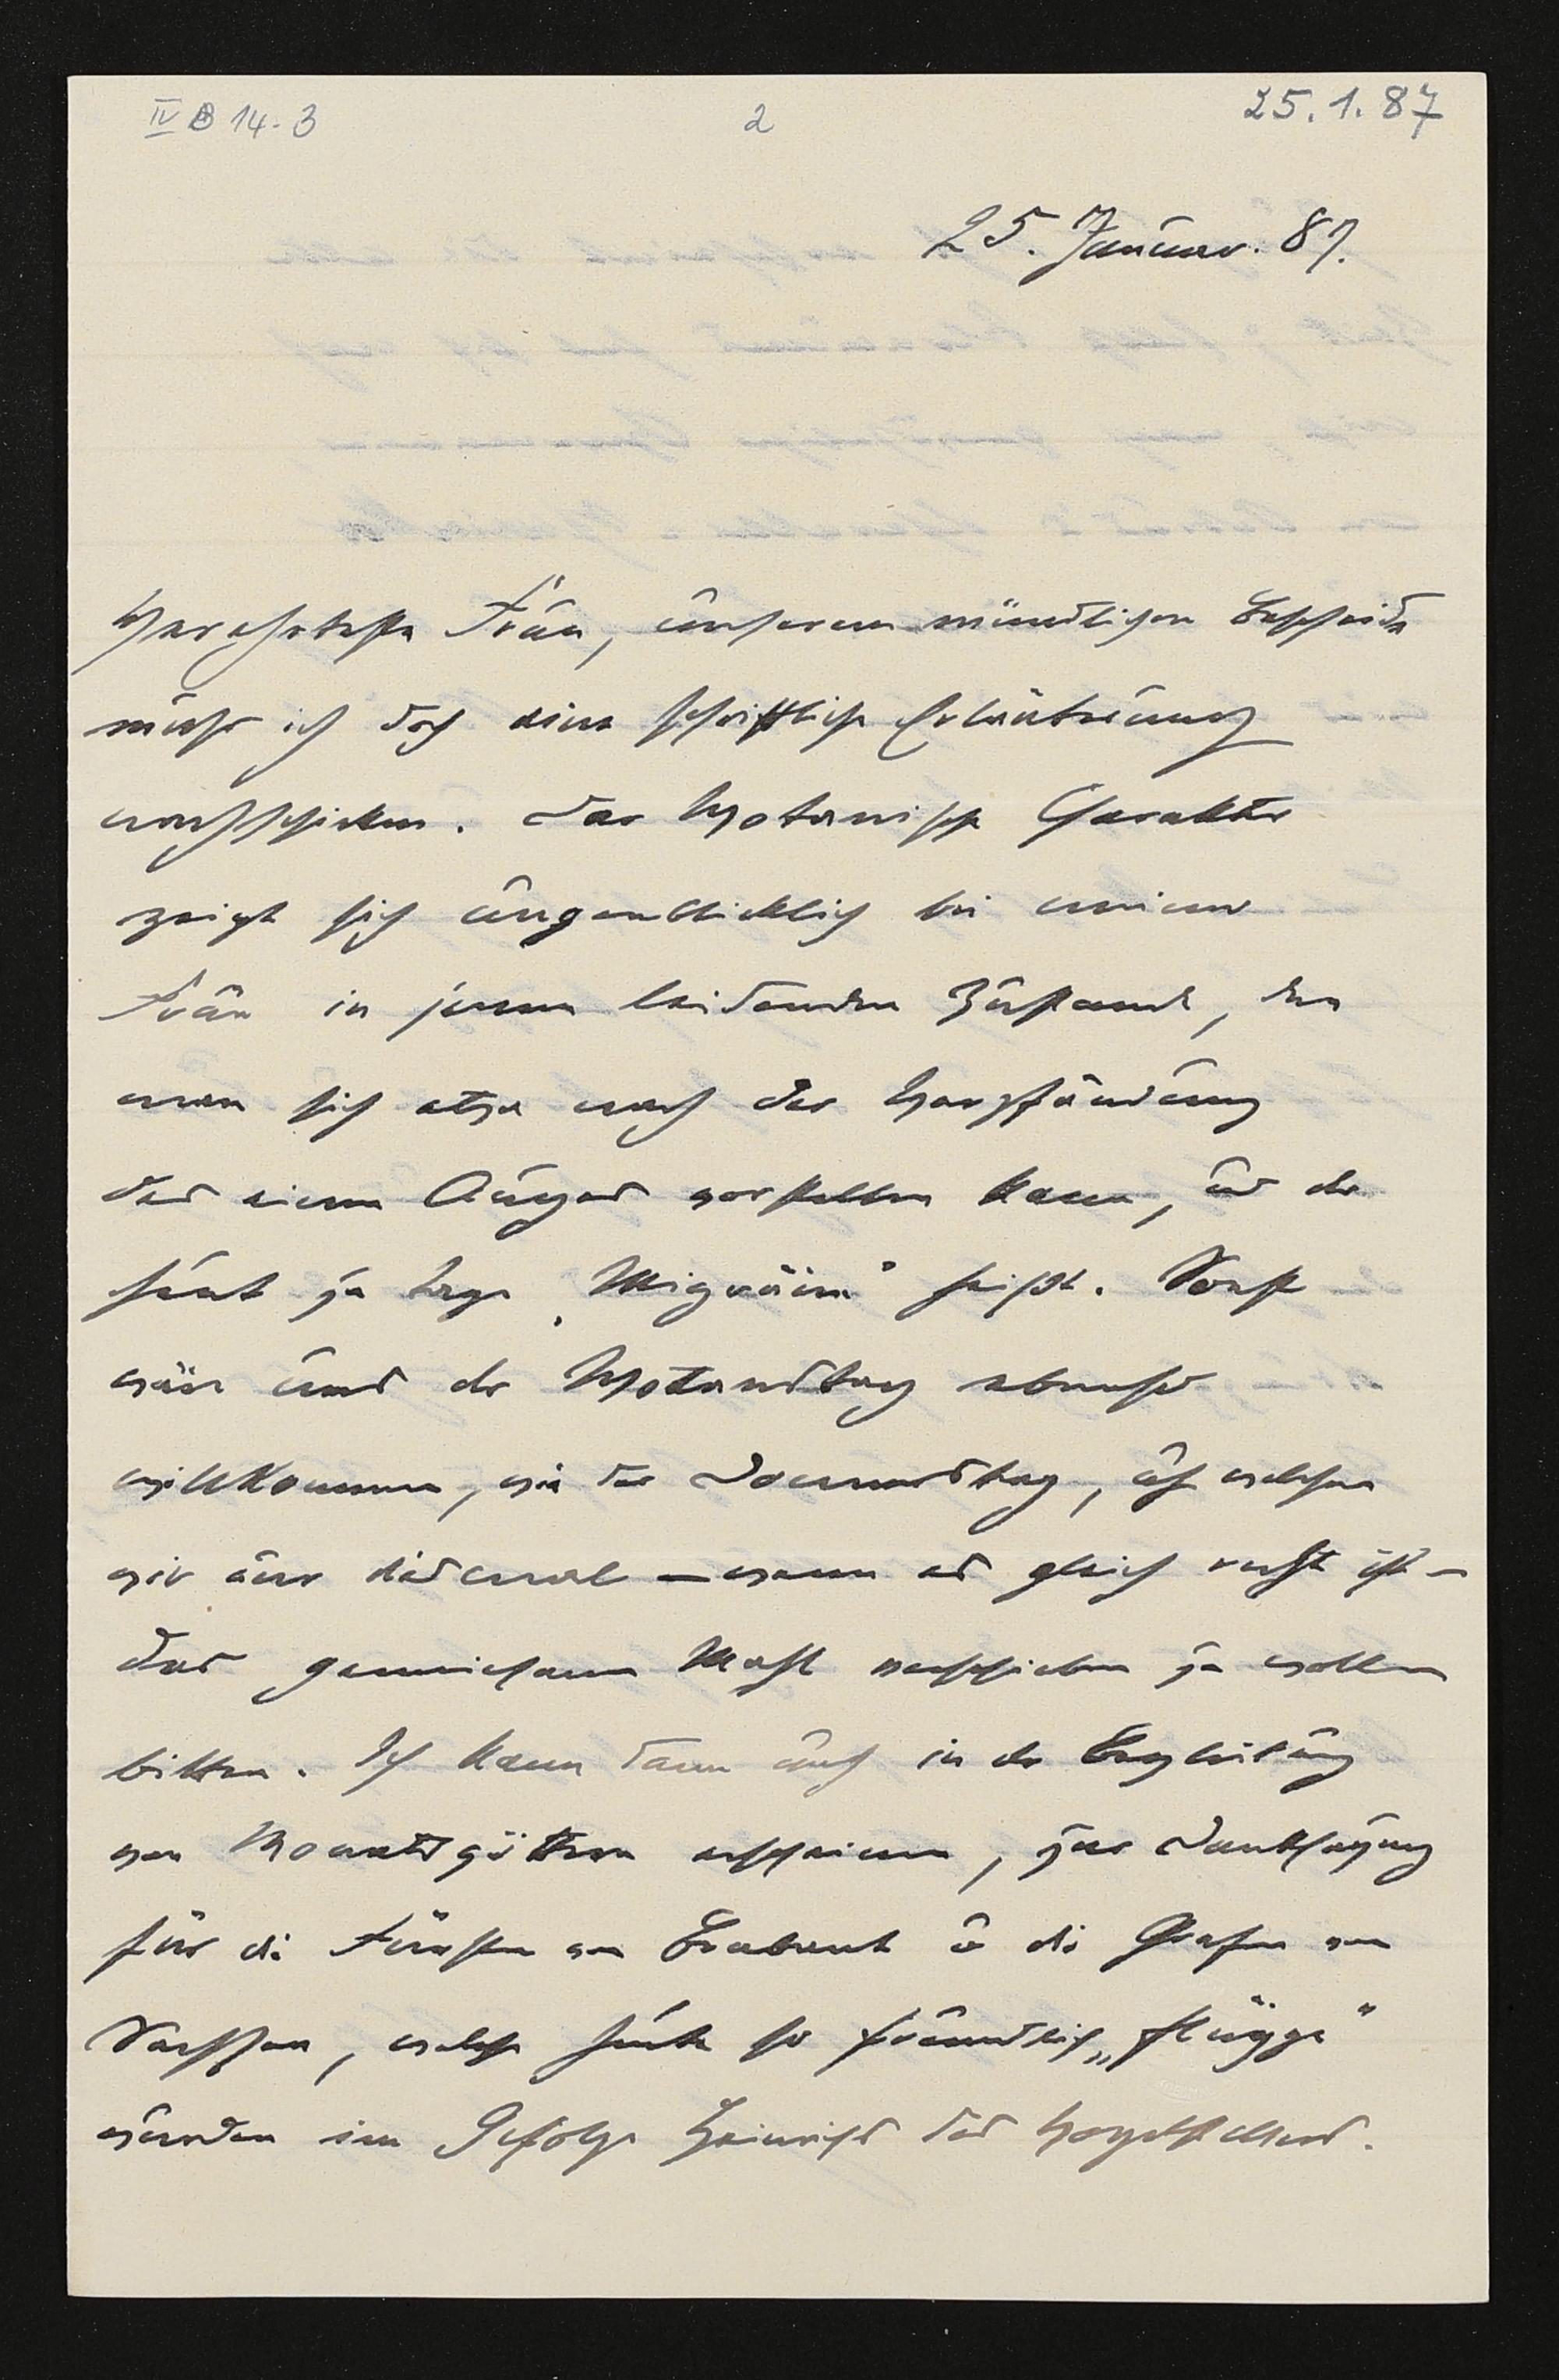 IV B 14-3
2
25.1.87
25. Januar. 87.
Verehrteste Frau, unserem mündlichen Bescheide
möcht' ich doch eine schriftliche Erläuterung
nachschicken. Der Wotanische Charakter
zeigt sich augenblicklich bei meiner
Frau in jenem leidenden Zustande, den
man sich etwa nach der Verpfändung
des einen Auges vorstellen kann, u. der
heut zu Tage „Migräne" heißt. Sonst
wäre uns der Wotanstag ebenso
willkommen, wie der Donnerstag, auf welchen
wir nur diesmal – wenn es gleich recht ist –
das gemeinsame Mahl verschieben zu wollen
bitten. Ich kann dann auch in der Begleitung
von Monatsgöttern erscheinen, zur Danksagung
für die Fürsten von Brabant u. die Grafen von
Sachsen, welche heute so freundlich „flügge"
wurden im Gefolge Heinrichs des Vogelstellers.